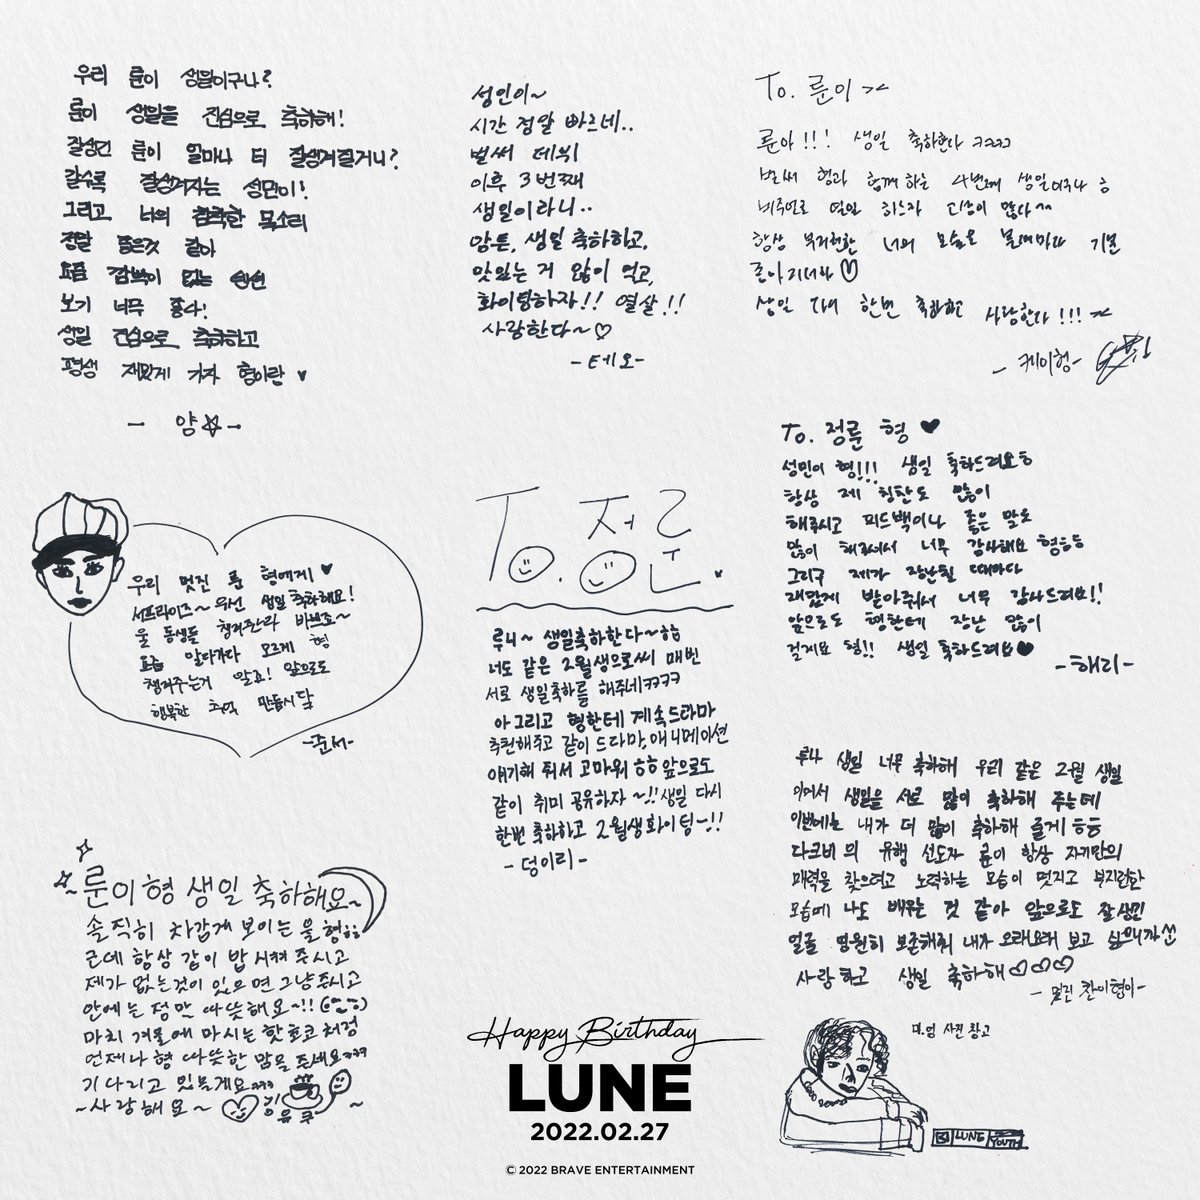 우리 룬이 생일이구나?
룬이 생일을 진심으로 축하해!
잘생긴 룬이 얼마나 더 잘생겨질거니?
갈수록 잘생겨지는 성민이!
그리고 너의 침착한 목소리
정말 좋은것 같아
요즘 감복이 없는
보기 너무 좋다!
생일 진심으로 축하하고
평생 재밌게 가자 형이랑 ♥
- 얌☆-
성인이~
시간 정말 빠르네..
벌써 데뷔
이후 3번째
생일이라니..
암튼, 생일 축하하고,
맛있는 거 많이 먹고,
화이팅하자!! 열살!!
사랑한다~♡
-테오-
To. 룬이 ><
룬아!!! 생일 축하한다 ㅋㅋㅋㅋ
벌써 형과 함께하는 4번째 생일이구나 ㅎ
많다^^
항상 부지런한 너의 모습을 볼때마다 기분
좋아지더라♡
생일 다시 한번 축하하고 사랑한다!!! ><
- 케이형-
To. 정룬 형 ♥
성민이 형!!! 생일 축하드려요ㅎ
항상 제 칭찬도 많이
해주시고 피드백이나 좋은 말도
많이 해주셔서 너무 감사해요 형응응
그리구 제가 장난칠 때마다
재밌게 받아줘서 너무 감사드려요!!
앞으로도 형한테 장난 많이
걸게요 형!! 생일 축하드려요♥
-해리-
우리 멋진 룬 형에게 ♥
서프라이즈~ 우선 생일 축하해요!
울 동생들 챙겨주랴 바쁘죠~
요즘 알다가다 모르게 형
챙겨주는거 알죠! 앞으로도
행복한 추억 만듭시닼
-준서-
To. 정룬.
루니~ 생일축하한다~ㅎㅎ
너도 같은 2월생으로써 매번
서로 생일축하를 해주네ㅋㅋㅋㅋ
아그리고 형한테 계속드라마
추천해주고 같이드라마,애니메이션
얘기해 줘서 고마워 ㅎㅎ앞으로도
같이 취미 공유하자~!!생일 다시
한번 축하하고 2월생화이팅~!!
-덩이리-
루니 생일 너무 축하해 우리 같은 2월 생일
이어서 생일을 서로 많이 축하해 주는데
이번에는 내가 더 많이 축하해 줄게 ㅎㅎ
다크비의 유행 선도자 룬이 항상 자기만의
매력을 찾으려고 노력하는 모습이 멋지고 부지런한
모습에 나도 배우는 것 같아 앞으로도 잘생긴
얼굴 영원히 보존해줘 내가 오래오래 보고 싶으니까
사랑하고 생일 축하해♡♡♡
- 멋진 찬이형이-
룬이형 생일 축하해요~
솔직히 차갑게 보이는 울형ㅎㅎ
근데 항상 같이 밥 시켜주시고
제가 없는것이 있으면 그냥주시고
안에는 정말 따뜻해요~!!
마치 겨울에 마시는 핫초코처럼
언제나 형 따뜻한 맘을 주세요ㅋㅋㅋ
기다리고 있을게요ㅋㅋㅋ
~사랑해요~ ♡ 깅 유쿠 ~
Happy Birthday
LUNE
2022.02.27
© 2022 BRAVE ENTERTAINMENT
미.업 사진 참고
LUNE YOUTH